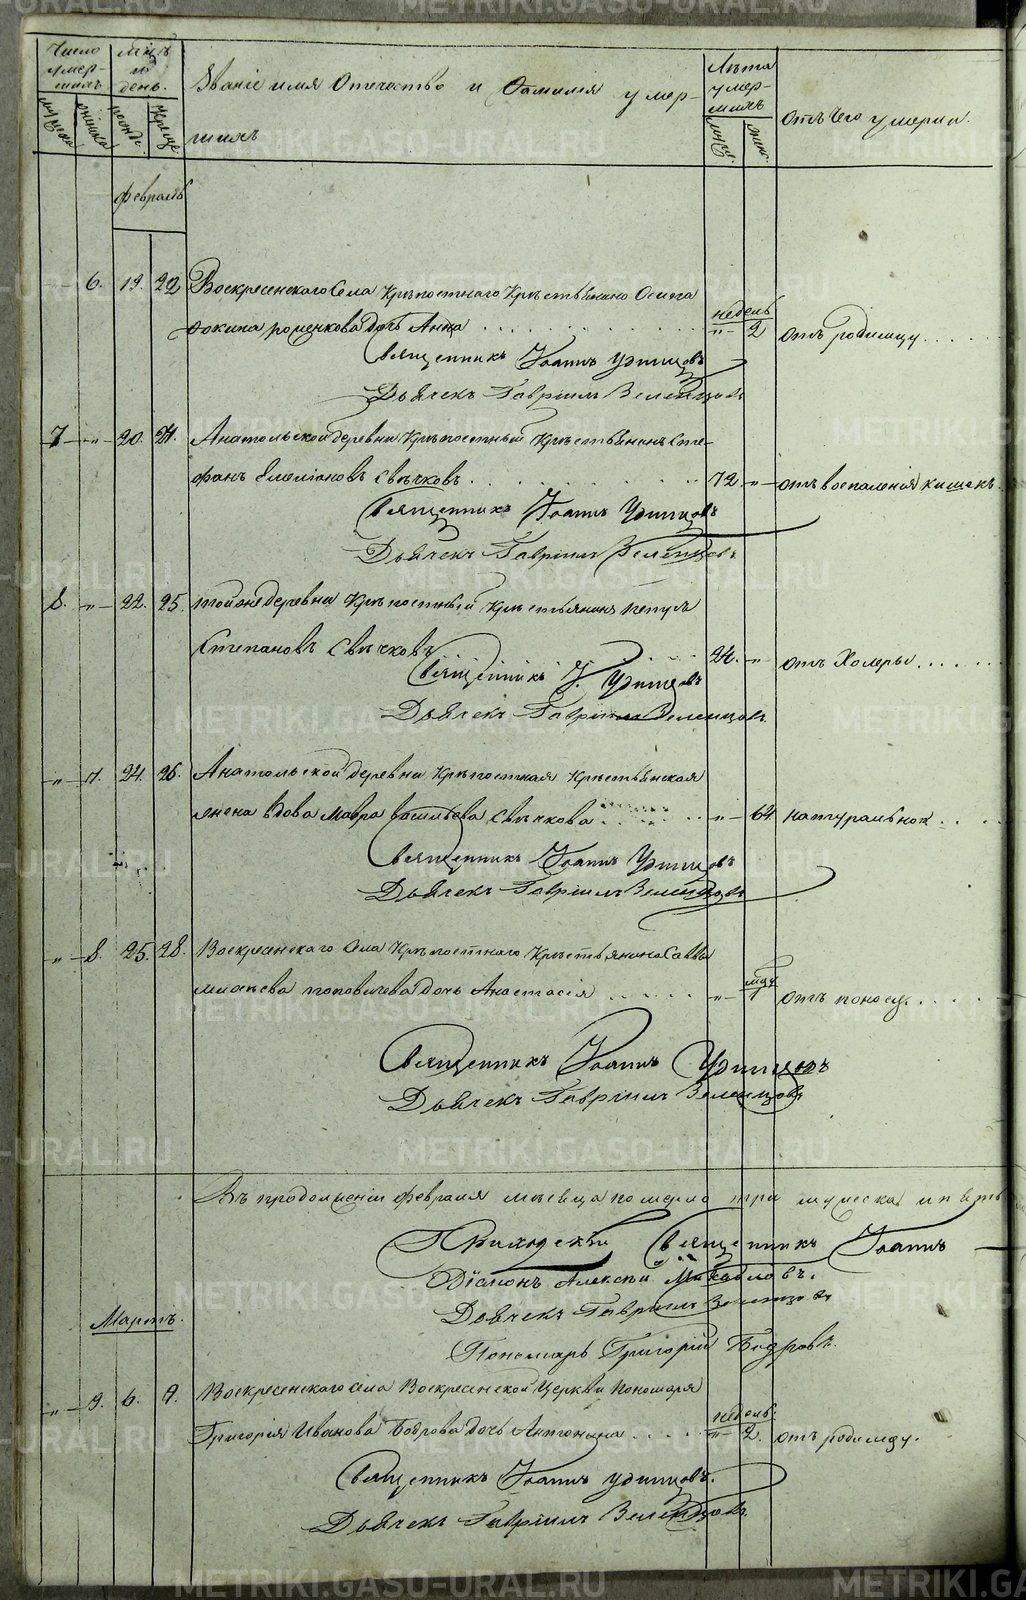 Число умершихъ
Мцъ и день.
Званіе имя Отечество и Фамилія умер-
шихъ
Лѣта умершихъ
Отъ Чего умерли.
мужеска
женска
муж.
жен.
февраль
6. 19. 22 Воскресенскаго Села Крѣпостнаго Крестьянина Осипа
Фокина роменкова Дочь Анна . . . недель " 2 отъ родимцу . . .
Священникъ Іоаннъ Удинцовъ
Дьячекъ Гавріилъ Зеленцовъ
7 " 20. 24. Анатольской деревни Крѣпостный Крестьянинъ Сте-
фанъ Емеліановъ Свѣчковъ . . . 72 " отъ воспаленія кишекъ.
Священникъ Іоаннъ Удинцовъ
Дьячекъ Гавріилъ Зеленцовъ
8. " 22. 25. тойже деревни Крѣпостный Крестьянинъ
Степановъ Свѣчковъ . . . 24. " отъ Холеры . . .
Священникъ І. Удинцовъ
Дьячекъ Гавріилъ Зеленцовъ
" 7. 24. 26. Анатольской деревни Крѣпостная Крестьянская
жена вдова Мавра Васильева Свѣчкова . . . " 64 натуральной . . .
Священникъ Іоаннъ Удинцовъ
Дьячекъ Гавріилъ Зеленцовъ
" 8. 25. 28. Воскресенскаго Села Крѣпостнаго Крестьянина Саввы
поповичева Дочь Анастасія . . . " 1 отъ поносу . . .
Священникъ Іоаннъ Удинцовъ
Дьячекъ Гавріилъ Зеленцовъ
Въ продолженіи февраля месяца померло три мужеска и пять
Приходскій Священникъ Іоаннъ
Діаконъ Алексѣй Михайловъ.
Дьячекъ Гавріилъ Зеленцовъ
Пономарь Григорій Бобровъ.
Мартъ.
" 9. 6. 9. Воскресенскаго села Воскресенской Церкви Пономаря
Григорія Иванова Боброва дочь Антонина . . . недель " 2. отъ родимцу.
Священникъ Іоаннъ Удинцовъ.
Дьячекъ Гавріилъ Зеленцовъ
METRIKI.GASO-URAL.RU